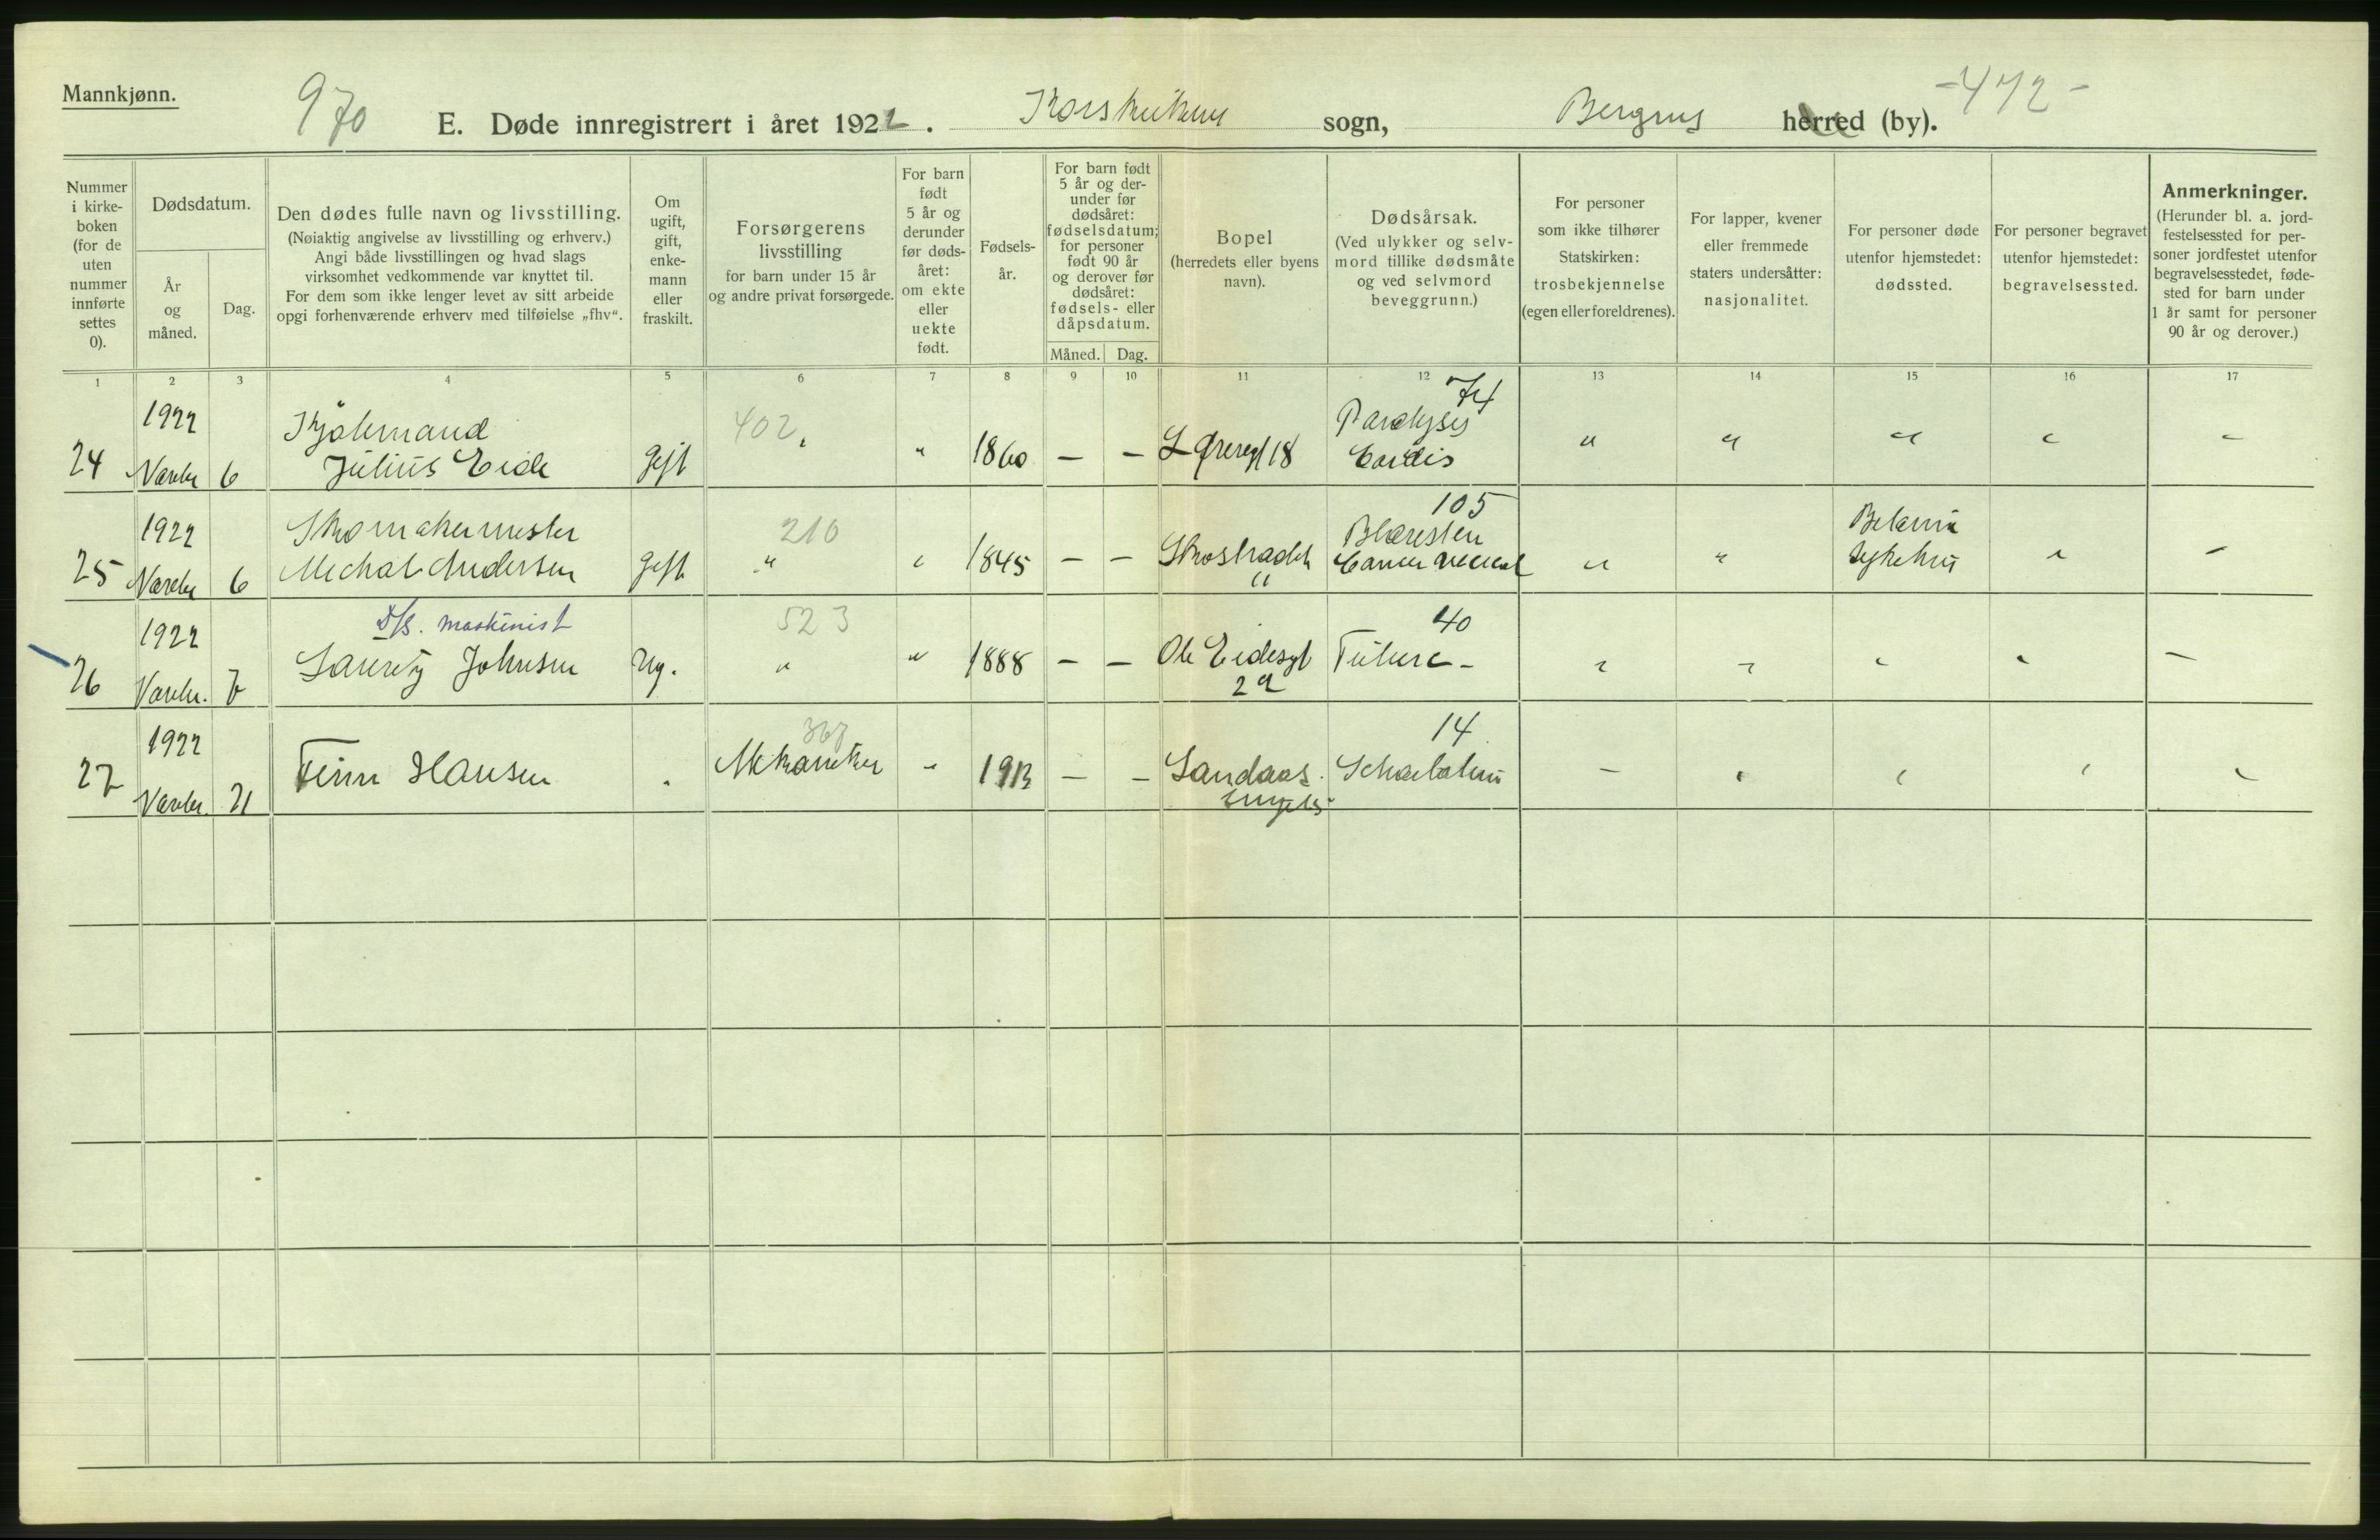 Mannkjønn.
970
E. Døde innregistrert i året 1922. Korskirkens sogn, Bergens herred (by).
-472-
Nummer i kirkeboken (for de uten nummer innførte settes 0).
Dødsdatum.
År og måned.
Dag.
Den dødes fulle navn og livsstilling.
(Nøiaktig angivelse av livsstilling og erhverv.)
Angi både livsstillingen og hvad slags
virksomhet vedkommende var knyttet til.
For dem som ikke lenger levet av sitt arbeide
opgi forhenværende erhverv med tilføielse „fhv“.
Om ugift, gift, enkemann eller fraskilt.
Forsørgerens
livsstilling
for barn under 15 år
og andre privat forsørgede.
For barn født 5 år og derunder før dødsåret: om ekte eller uekte født.
Fødselsår.
For barn født 5 år og derunder før dødsåret: fødselsdatum; for personer født 90 år og derover før dødsåret: fødsels- eller dåpsdatum.
Måned. Dag.
Bopel
(herredets eller byens
navn).
Dødsårsak.
(Ved ulykker og selvmord tillike dødsmåte og ved selvmord beveggrunn.)
For personer
som ikke tilhører
Statskirken:
trosbekjennelse
(egen eller foreldrenes).
For lapper, kvener
eller fremmede
staters undersåtter:
nasjonalitet.
For personer døde
utenfor hjemstedet:
dødssted.
For personer begravet
utenfor hjemstedet:
begravelsessted.
Anmerkninger.
(Herunder bl. a. jordfestelsessted for personer jordfestet utenfor begravelsesstedet, fødested for barn under 1 år samt for personer 90 år og derover.)
1 2 3 4 5 6 7 8 9 10 11 12 13 14 15 16 17
1922 Kjølemand 402 Paralysis 74
24 6 Julius Eide Gift " 1860 — — 18 Cordis " " " " -
1922 Skomakermester 210 Blæresten 105
25 6 Michal Andersen Gift " " 1845 — — Skostrædet Cancer " " sykehus " -
1922 D/S. maskinist 523 40
26 7 Lauritz Johnsen Ug. " " 1888 — — Ole Eidesgt Tuberc - " " " " -
22
1922 367 14
27 21 Finn Hansen Mekaniker " 1913 — — Sandaas Scharlatina — " " " "